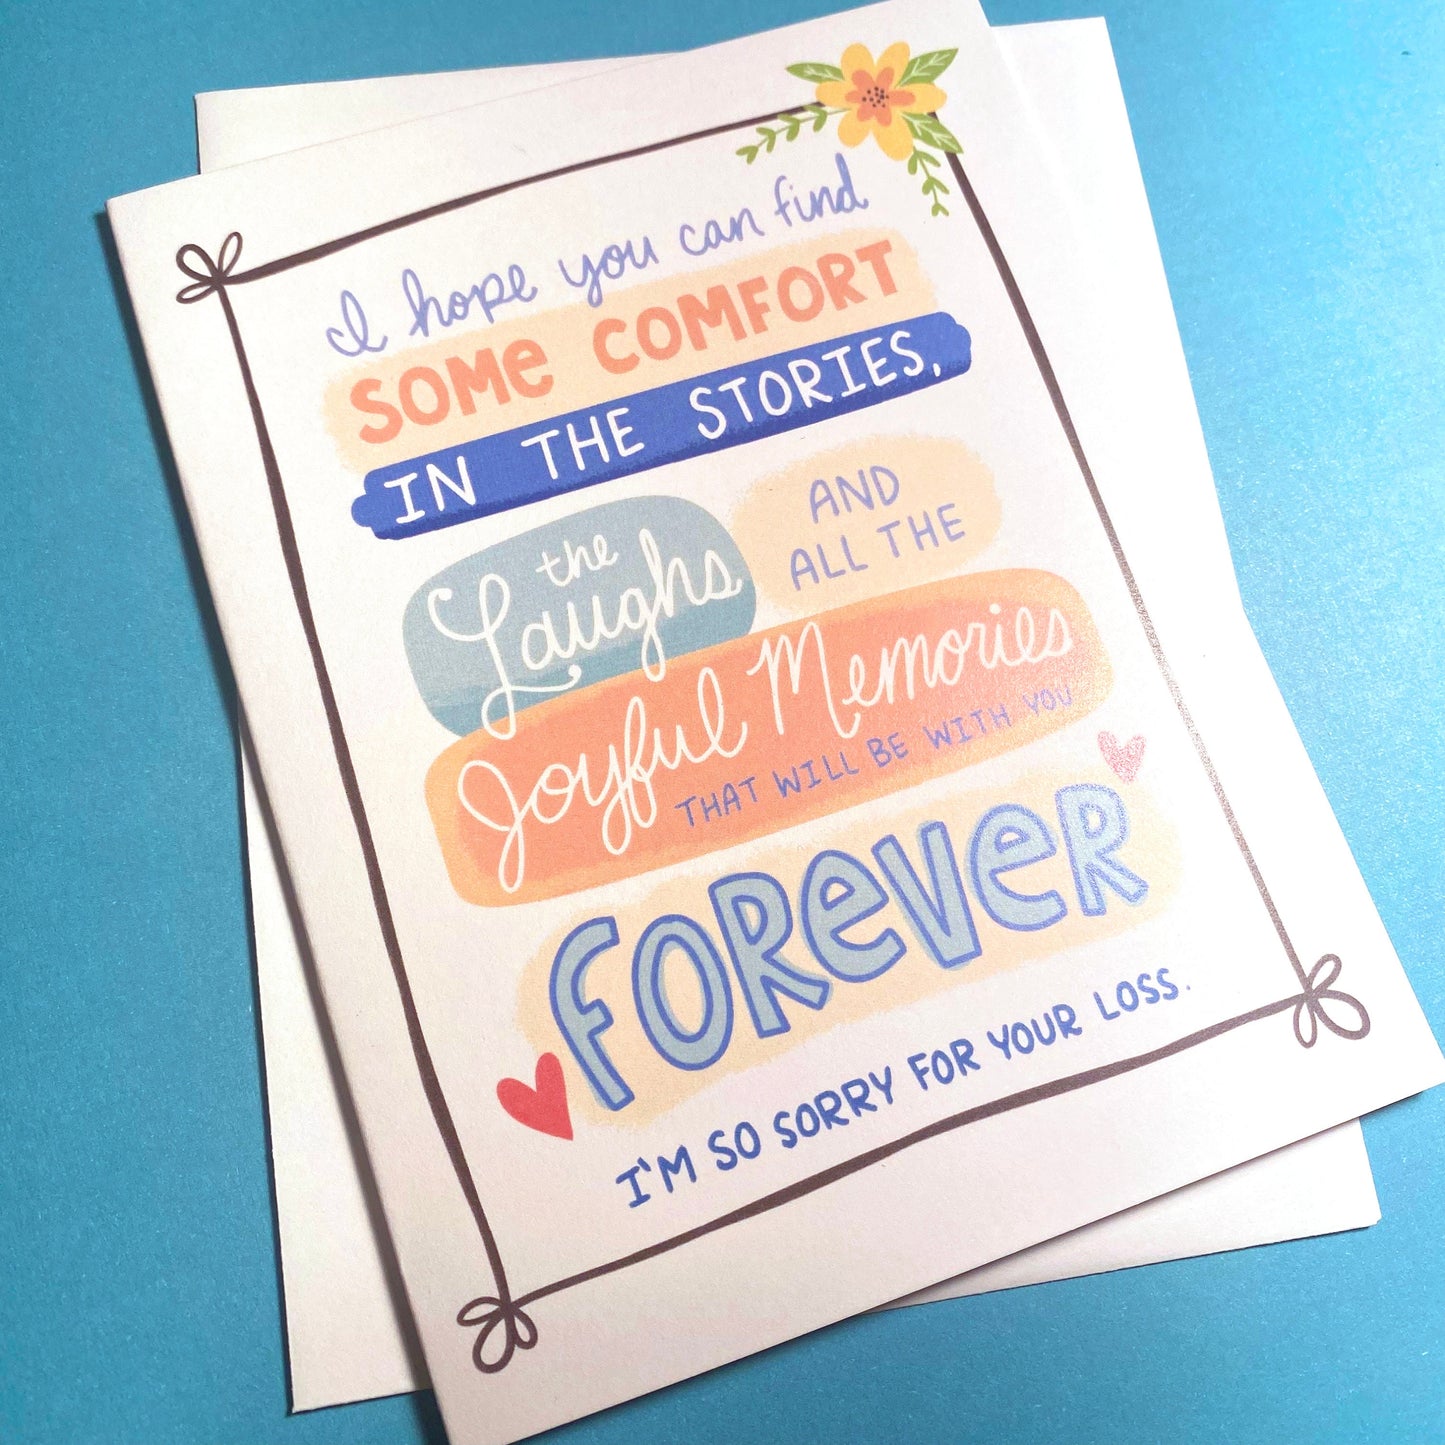 I hope you can find
SOME COMFORT
IN THE STORIES,
the
Laughs
AND
ALL THE
Joyful Memories
THAT WILL BE WITH YOU
FOREVER
I'M SO SORRY FOR YOUR LOSS.